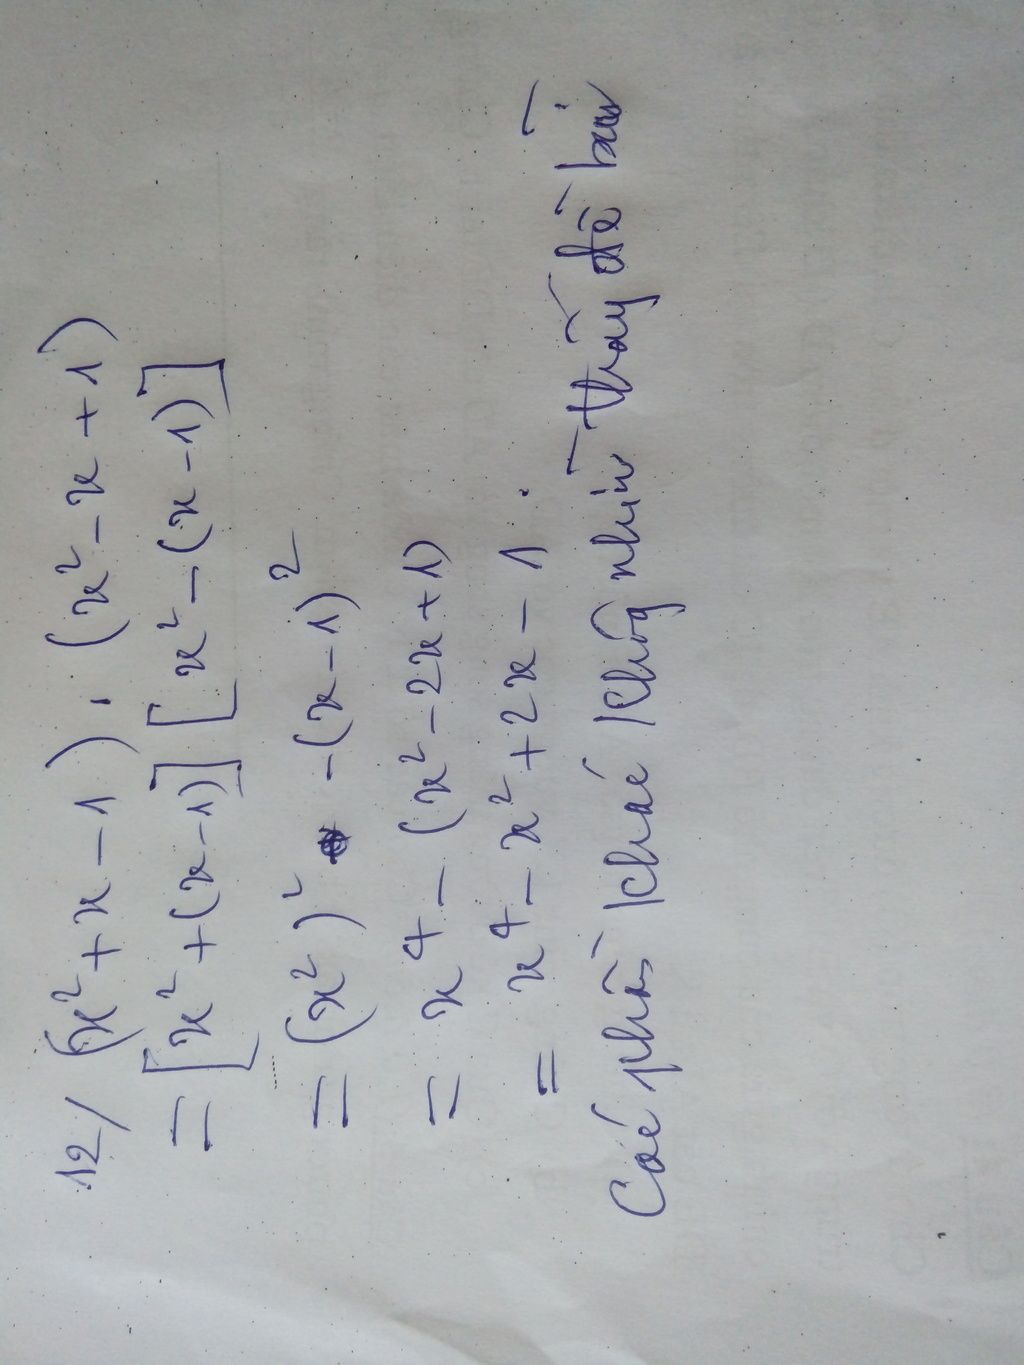 12/ (x² + x - 1) . (x² - x + 1)
= [x² + (x - 1)] [x² - (x - 1)]
= (x²)² - (x - 1)²
= x⁴ - (x² - 2x + 1)
= x⁴ - x² + 2x - 1 .
Các phần khác không nhìn thấy đề bài